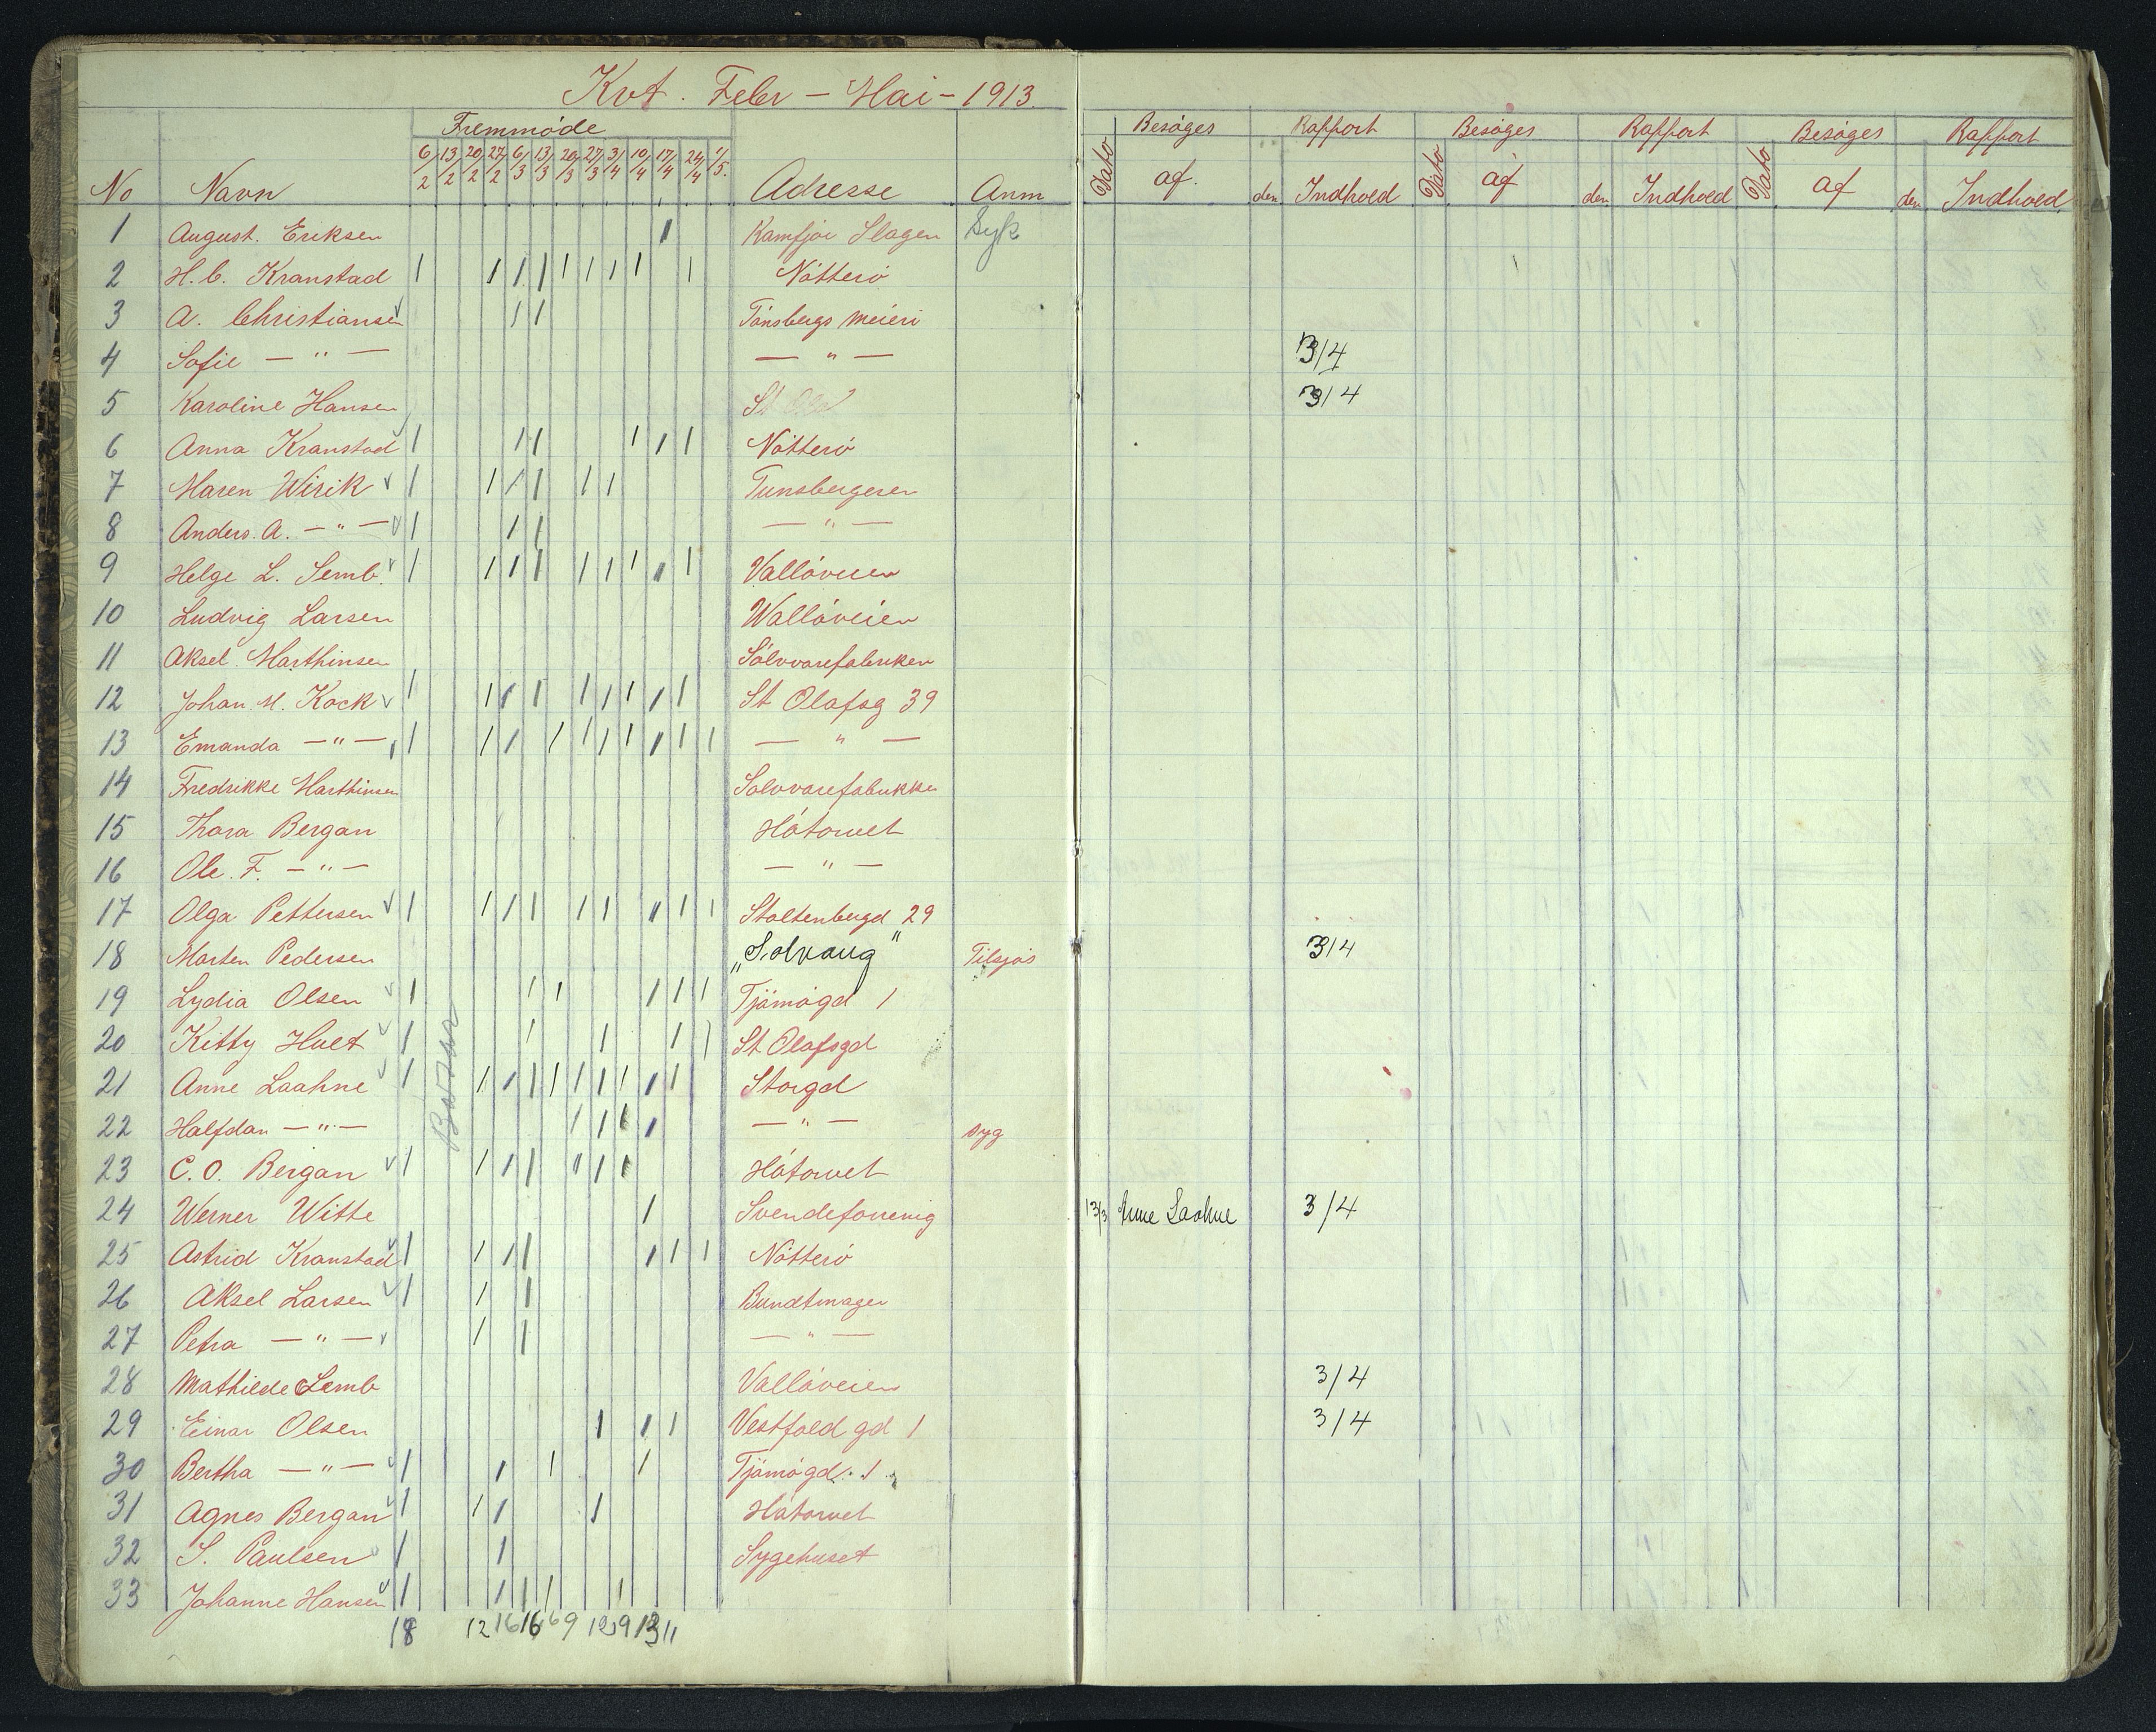 Kvt. Febr – Mai – 1913
Fremmøde
No Navn 6/2 13/2 20/2 27/2 6/3 13/3 20/3 27/3 3/4 10/4 17/4 24/4 1/5. Adresse Anm
1 August. Eriksen Kamfjor Slagen Syk
2 H. C. Kranstad Nøtterö
3 A. Christiansen Tönsbergs Meieri
4 Sofie — " — — " —
5 Karoline Hansen St
6 Anna Kranstad Nötterö
7 Maren Wirik Tunsbergeren
8 Anders. A. — " — — " —
9 Helge L. Semb. Vallöveien
10 Ludvig Larsen Wallöveien
11 Aksel Marthinsen Sölvvarefabriken
12 Johan. M. Kock St Olafsg 39
13 Emanda — " — — " —
14 Fredrikke Marthinsen Solvvarefabrikken
15 Thora Bergan Hótorvet
16 Ole. F. — " — — " —
17 Olga Pettersen Stoltenbergd 29
18 Marten Pedersen „Solvang" Tilsjøs
19 Lydia Olsen Tjömögd 1
20 Kitty Hvet St Olafsgd
21 Anne Laahne Storgd
22 Halfdan — " — — " — syg
23 C. O. Bergan Hótorvet
24 Werner Witte Svendeforenig
25 Astrid Kranstad Nötterö
26 Aksel Larsen Bundtmager
27 Petra — " — — " —
28 Mathilde Semb Vallöveien
29 Einar Olsen Vestfold gd 1
30 Bertha — " — Tjömögd. 1
31 Agnes Bergan Hótorvet
32 S. Paulsen Sygehuset
33 Johanne Hansen
18 12 16 16 6 9 12 9 13 11
Basar
Besøges Rapport Besøges Rapport Besøges Rapport
Dato af. den Indhold Dato af den Indhold Dato af den Indhold
3/4
3/4
3/4
13/3 Anne Laahne 3/4
3/4
3/4